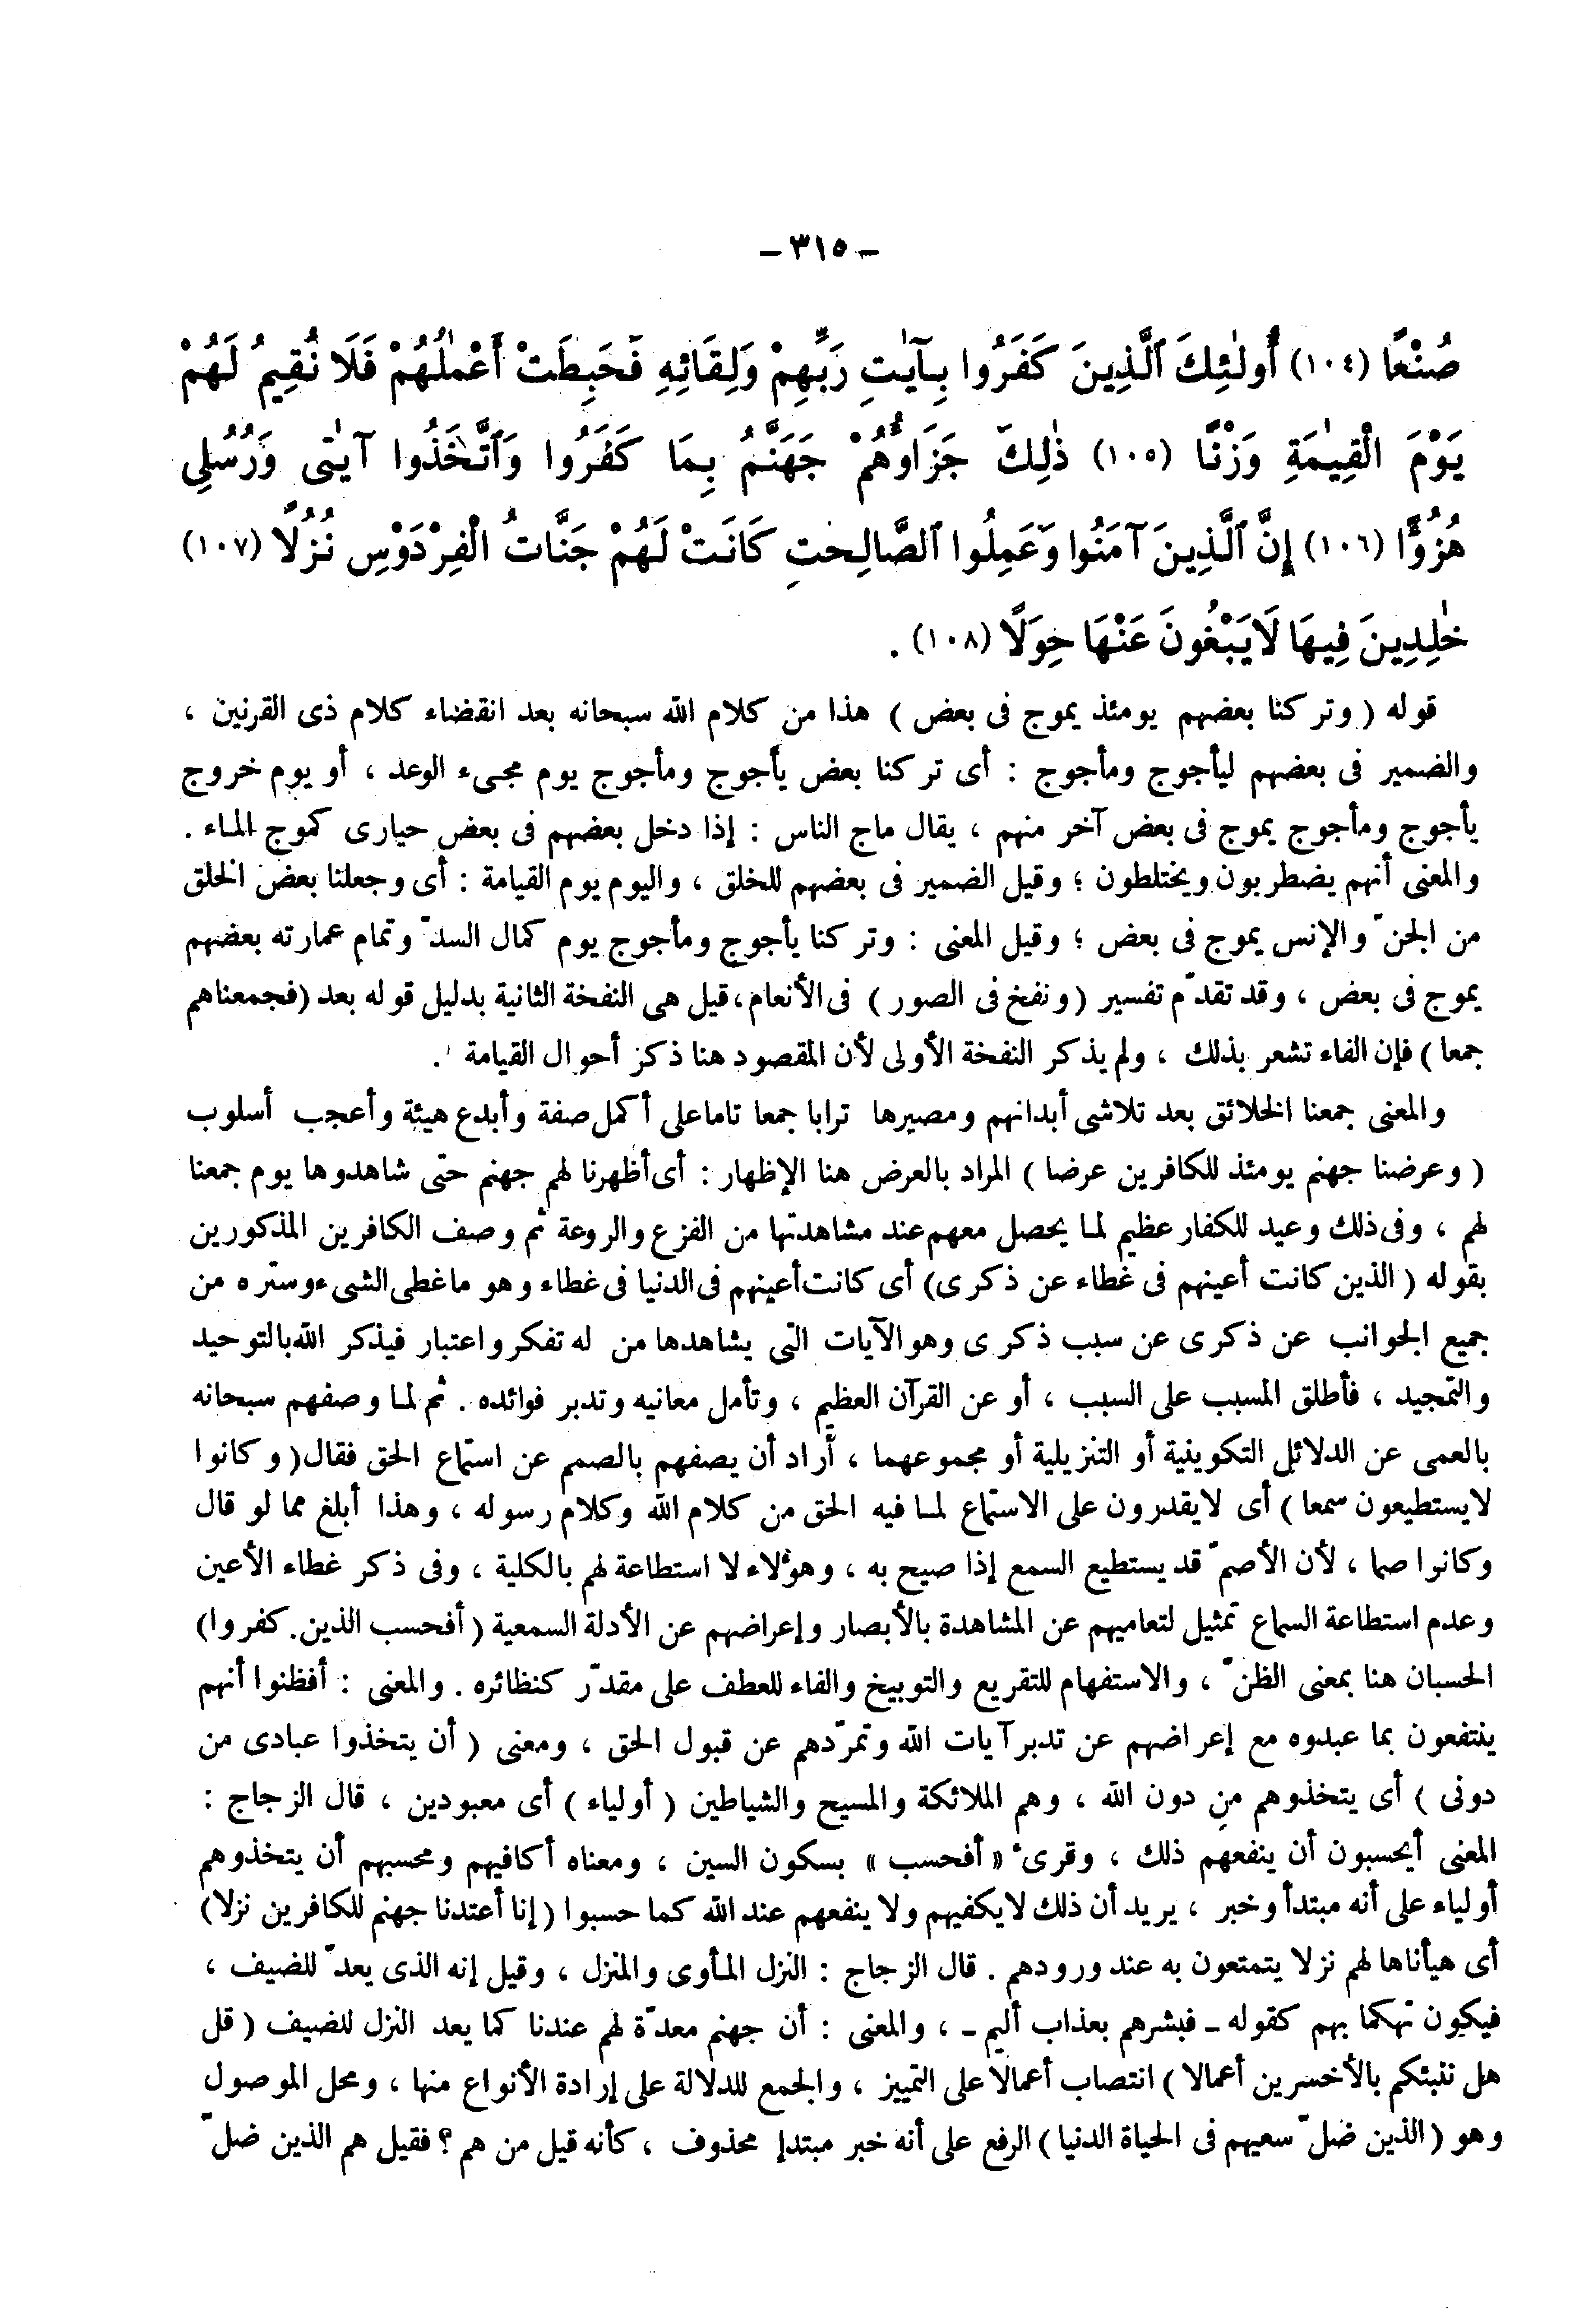 - ٣١٥ -
صُنْعًا (١٠٤) أُولٰئِكَ ٱلَّذِينَ كَفَرُوا بِـآيٰتِ رَبِّهِمْ وَلِقَائِهِ فَحَبِطَتْ أَعْمٰلُهُمْ فَلَا نُقِيمُ لَهُمْ
يَوْمَ الْقِيٰمَةِ وَزْنًا (١٠٥) ذٰلِكَ جَزَاؤُهُمْ جَهَنَّمُ بِمَا كَفَرُوا وَٱتَّخَذُوا آيٰتِى وَرُسُلِى
هُزُوًا (١٠٦) إِنَّ ٱلَّذِينَ آمَنُوا وَعَمِلُوا ٱلصَّالِحٰتِ كَانَتْ لَهُمْ جَنَّاتُ الْفِرْدَوْسِ نُزُلًا (١٠٧)
خٰلِدِينَ فِيهَا لَا يَبْغُونَ عَنْهَا حِوَلًا (١٠٨) .
قوله ( وتركنا بعضهم يومئذ يموج فى بعض ) هذا من كلام الله سبحانه بعد انقضاء كلام ذى القرنين ،
والضمير فى بعضهم ليأجوج ومأجوج : أى تركنا بعض يأجوج ومأجوج يوم مجىء الوعد ، أو يوم خروج
يأجوج ومأجوج يموج فى بعض آخر منهم ، يقال ماج الناس : إذا دخل بعضهم فى بعض حيارى كموج الماء .
والمعنى أنهم يضطربون ويختلطون ؛ وقيل الضمير فى بعضهم للخلق ، واليوم يوم القيامة : أى وجعلنا بعض الخلق
من الجنّ والإنس يموج فى بعض ؛ وقيل المعنى : وتركنا يأجوج ومأجوج يوم كمال السدّ وتمام عمارته بعضهم
يموج فى بعض ، وقد تقدّم تفسير ( ونفخ فى الصور ) فى الأنعام ، قيل هى النفخة الثانية بدليل قوله بعد (فجمعناهم
جمعا ) فإن الفاء تشعر بذلك ، ولم يذكر النفخة الأولى لأن المقصود هنا ذكر أحوال القيامة .
والمعنى جمعنا الخلائق بعد تلاشى أبدانهم ومصيرها ترابا جمعا تاما على أكمل صفة وأبدع هيئة وأعجب أسلوب
( وعرضنا جهنم يومئذ للكافرين عرضا ) المراد بالعرض هنا الإظهار : أى أظهرنا لهم جهنم حتى شاهدوها يوم جمعنا
لهم ، وفى ذلك وعيد للكفار عظيم لما يحصل معهم عند مشاهدتها من الفزع والروعة ثم وصف الكافرين المذكورين
بقوله ( الذين كانت أعينهم فى غطاء عن ذكرى) أى كانت أعينهم فى الدنيا فى غطاء وهو ما غطى الشىء وستره من
جميع الجوانب عن ذكرى عن سبب ذكرى وهو الآيات التى يشاهدها من له تفكر واعتبار فيذكر الله بالتوحيد
والتمجيد ، فأطلق المسبب على السبب ، أو عن القرآن العظيم ، وتأمل معانيه وتدبر فوائده . ثم لما وصفهم سبحانه
بالعمى عن الدلائل التكوينية أو التنزيلية أو مجموعهما ، أراد أن يصفهم بالصمم عن استماع الحق فقال ( وكانوا
لا يستطيعون سمعا ) أى لا يقدرون على الاستماع لما فيه الحق من كلام الله وكلام رسوله ، وهذا أبلغ مما لو قال
وكانوا صما ، لأن الأصمّ قد يستطيع السمع إذا صيح به ، وهؤلاء لا استطاعة لهم بالكلية ، وفى ذكر غطاء الأعين
وعدم استطاعة السماع تمثيل لتعاميهم عن المشاهدة بالأبصار وإعراضهم عن الأدلة السمعية ( أفحسب الذين كفروا)
الحسبان هنا بمعنى الظنّ ، والاستفهام للتقريع والتوبيخ والفاء للعطف على مقدّر كنظائره . والمعنى : أفظنوا أنهم
ينتفعون بما عبدوه مع إعراضهم عن تدبر آيات الله وتمرّدهم عن قبول الحق ، ومعنى ( أن يتخذوا عبادى من
دونى ) أى يتخذوهم من دون الله ، وهم الملائكة والمسيح والشياطين ( أولياء ) أى معبودين ، قال الزجاج :
المعنى أيحسبون أن ينفعهم ذلك ، وقرئ « أفحسب » بسكون السين ، ومعناه أكافيهم ومحسبهم أن يتخذوهم
أولياء على أنه مبتدأ وخبر ، يريد أن ذلك لا يكفيهم ولا ينفعهم عند الله كما حسبوا ( إنا أعتدنا جهنم للكافرين نزلا)
أى هيأناها لهم نزلا يتمتعون به عند ورودهم . قال الزجاج : النزل المأوى والمنزل ، وقيل إنه الذى يعدّ للضيف ،
فيكون تهكما بهم كقوله - فبشرهم بعذاب أليم - ، والمعنى : أن جهنم معدّة لهم عندنا كما يعد النزل للضيف ( قل
هل ننبئكم بالأخسرين أعمالا ) انتصاب أعمالا على التمييز ، والجمع للدلالة على إرادة الأنواع منها ، ومحل الموصول
وهو ( الذين ضلّ سعيهم فى الحياة الدنيا ) الرفع على أنه خبر مبتدإ محذوف ، كأنه قيل من هم ؟ فقيل هم الذين ضلّ